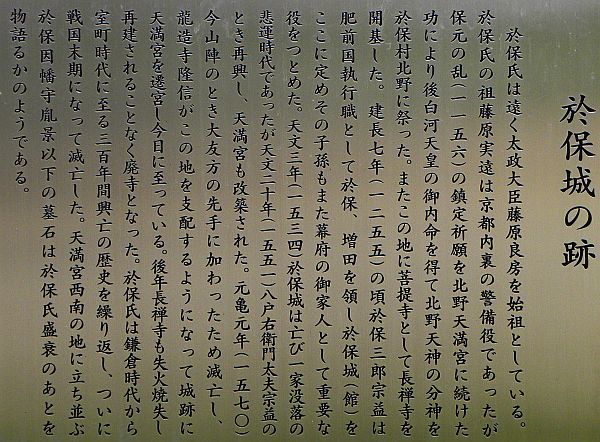 於保城の跡
於保氏は遠く太政大臣藤原良房を始祖としている。
於保氏の祖藤原実遠は京都内裏の警備役であったが
保元の乱(一一五六)の鎮定祈願を北野天満宮に続けた
功により後白河天皇の御内命を得て北野天神の分神を
於保村北野に祭った。またこの地に菩提寺として長禅寺を
開基した。建長七年(一二五五)の頃於保三郎宗益は
肥前国執行職として於保、増田を領し於保城(館)を
ここに定めその子孫もまた幕府の御家人として重要な
役をつとめた。天文三年(一五三四)於保城は亡び一家没落の
悲運時代であったが天文二十年(一五五一)八戸右衛門太夫宗益の
とき再興し、天満宮も改築された。元亀元年(一五七〇)
今山陣のとき大友方の先手に加わったため滅亡し、
龍造寺隆信がこの地を支配するようになって城跡に
天満宮を遷宮し今日に至っている。後年長禅寺も失火焼失し
再建されることなく廃寺となった。於保氏は鎌倉時代から
室町時代に至る三百年間興亡の歴史を繰り返し、ついに
戦国末期になって滅亡した。天満宮西南の地に立ち並ぶ
於保因幡守胤景以下の墓石は於保氏盛衰のあとを
物語るかのようである。